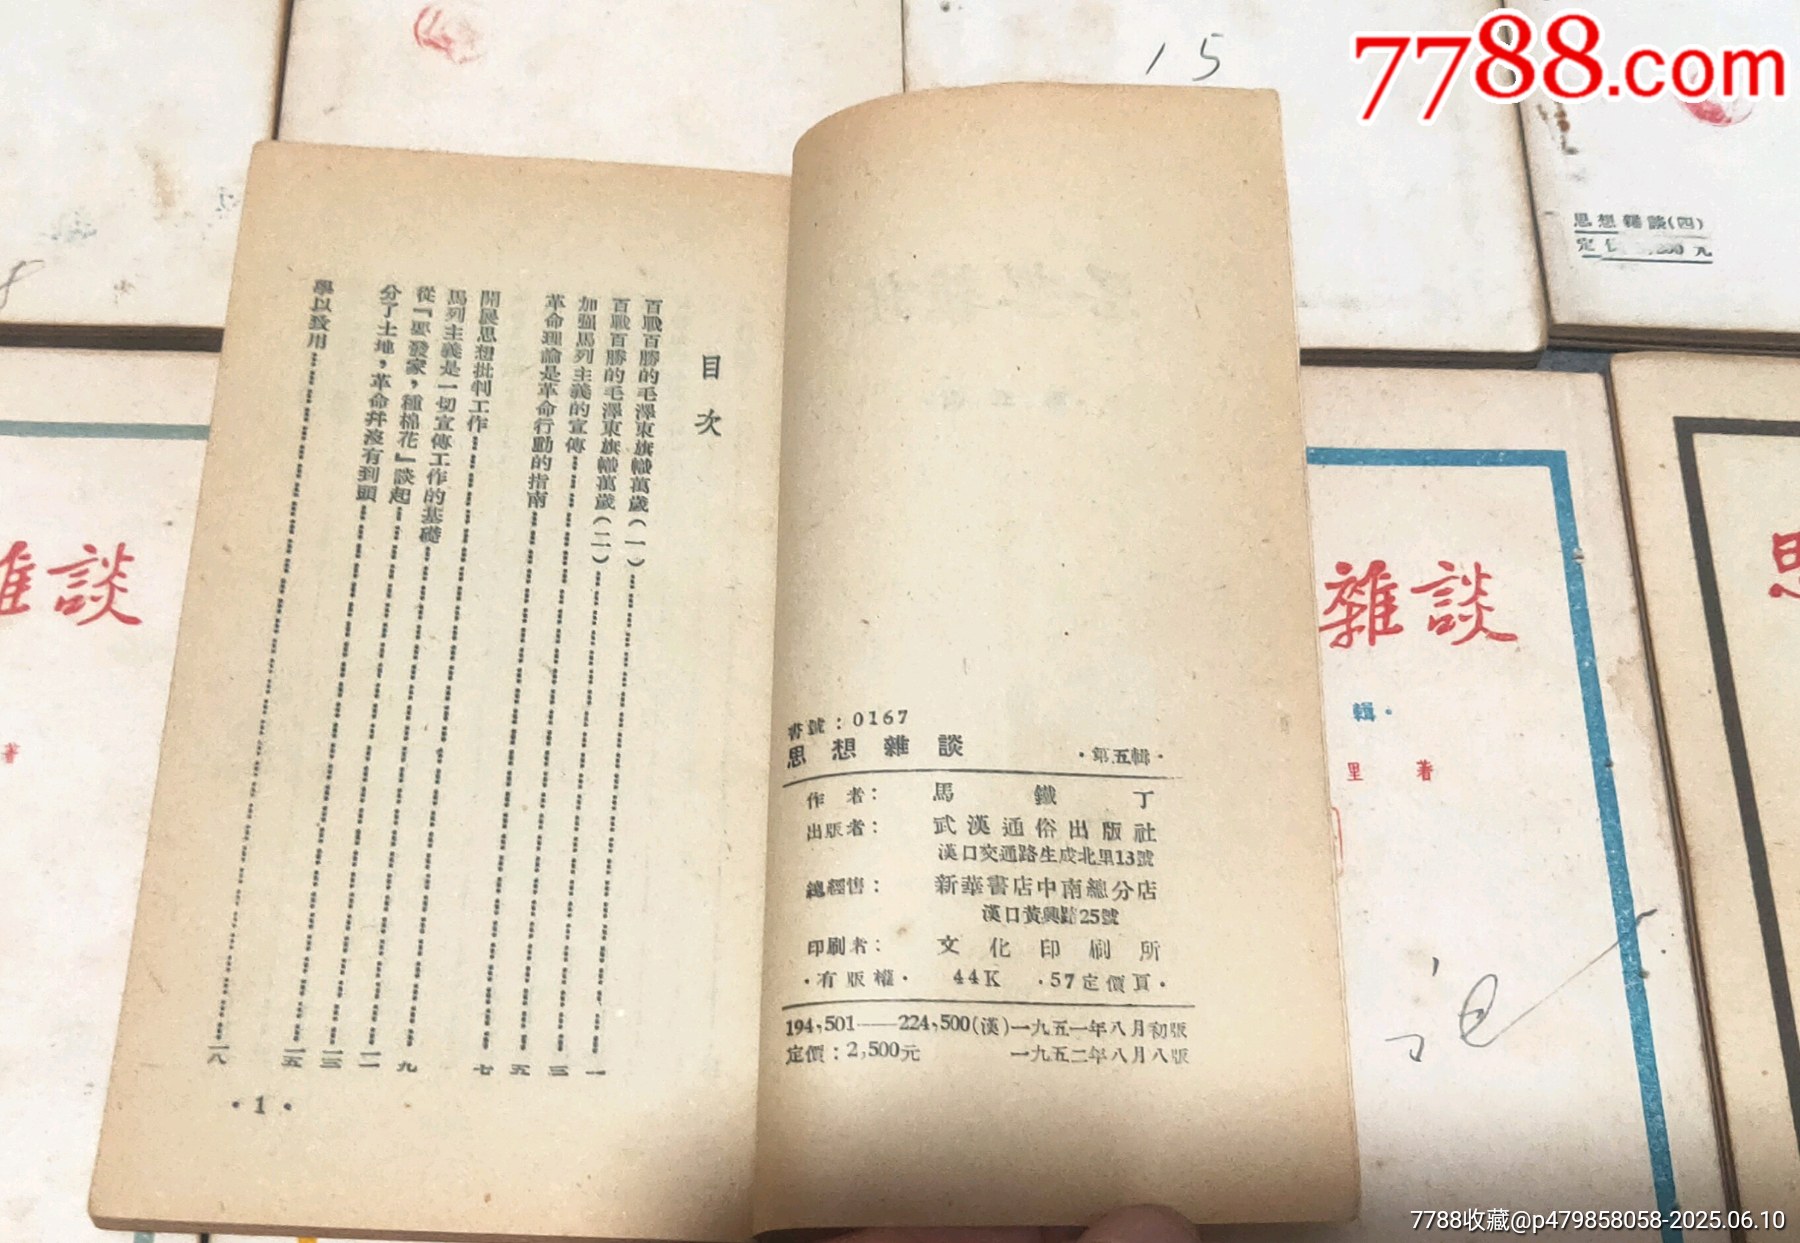 7788.com
15
思想雜談(四)
書號：0167
思想雜談 ·第五輯·
作者： 馬鐵丁
出版者： 武漢通俗出版社
漢口交通路生成北里13號
總經售： 新華書店中南總分店
漢口黃興路25號
印刷者： 文化印刷所
·有版權· 44K ·57定價頁·
194,501——224,500(漢)一九五一年八月初版
定價：2,500元 一九五二年八月八版
目次
百戰百勝的毛澤東旗幟萬歲(一)……一
百戰百勝的毛澤東旗幟萬歲(二)……三
加強馬列主義的宣傳……五
革命理論是革命行動的指南……七
開展思想批判工作……九
馬列主義是一切宣傳工作的基礎……一一
從『要發家，種棉花』談起……一三
分了土地，革命并沒有到頭……一五
學以致用……一八
·1·
雜談
著
雜談
輯·
里 著
思
7788收藏@p479858058-2025.06.10